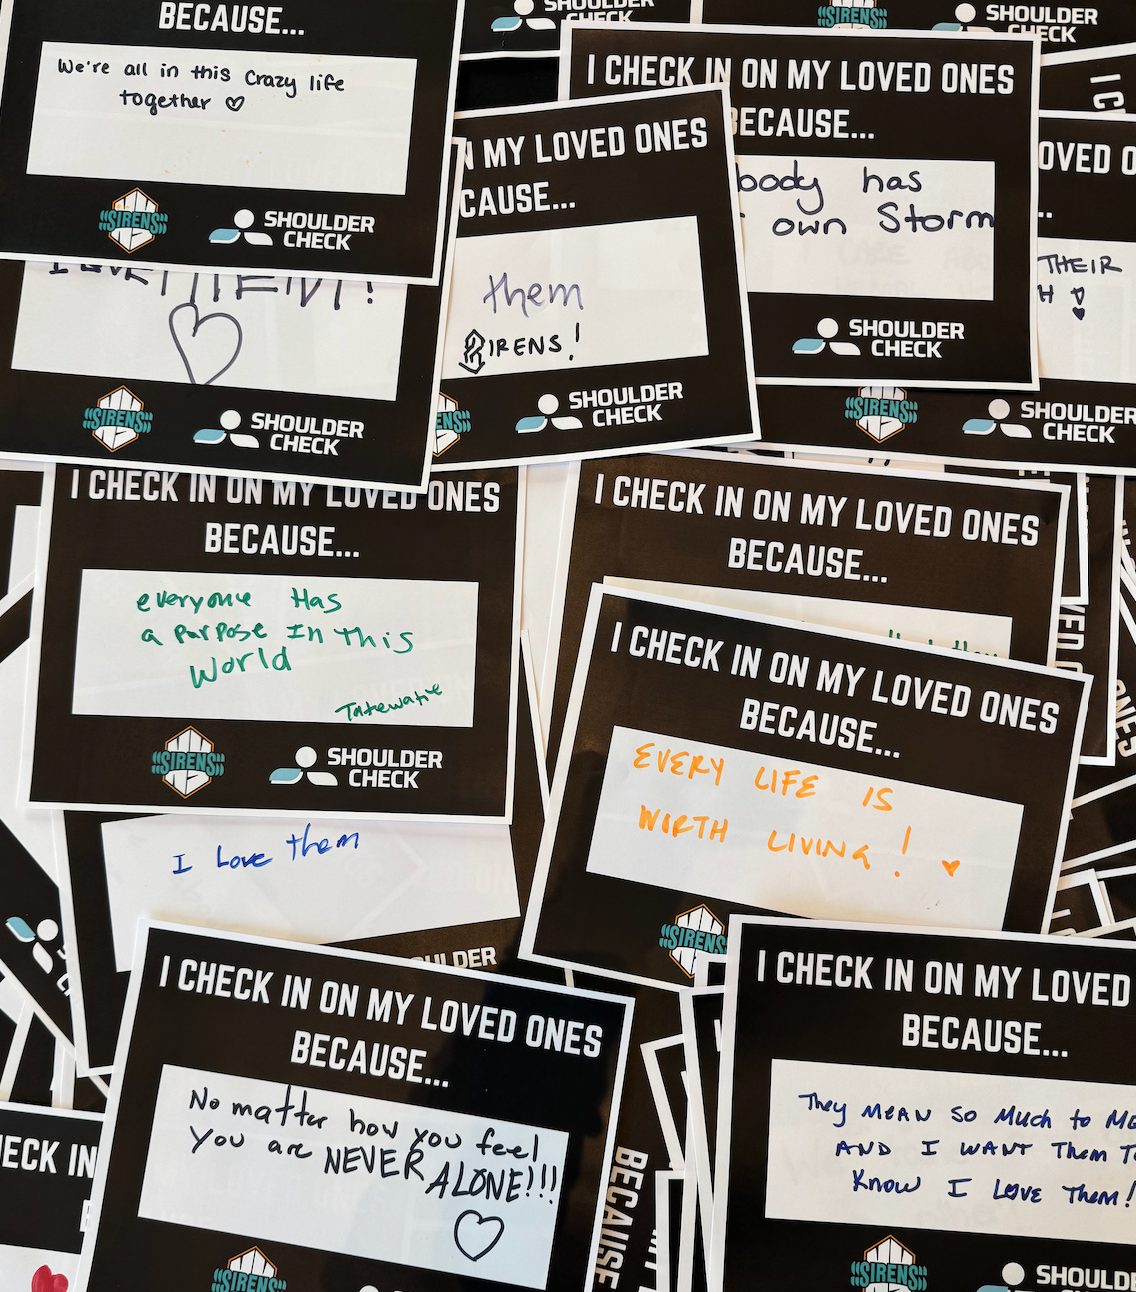 BECAUSE...
We're all in this Crazy life
together
SIRENS
SHOULDER
CHECK
SHOULDER
CHECK
SIRENS
SHOULDER
CHECK
I CHECK IN ON MY LOVED ONES
BECAUSE...
body has
own Storm
SHOULDER
CHECK
MY LOVED ONES
CAUSE...
them
SIRENS!
SHOULDER
CHECK
OVED O
THEIR
H
I LOVE THEM!
SIRENS
SHOULDER
CHECK
SIRENS
SHOULDER
CHECK
I CHECK IN ON MY LOVED ONES
BECAUSE...
everyone Has
a Purpose In this
World
SIRENS
SHOULDER
CHECK
I CHECK IN ON MY LOVED ONES
BECAUSE...
I CHECK IN ON MY LOVED ONES
BECAUSE...
EVERY LIFE IS
WORTH LIVING!
SIRENS
I Love them
ULDER
I CHECK IN ON MY LOVED ONES
BECAUSE...
No matter how you feel
you are NEVER ALONE!!!
SIRENS
I CHECK IN ON MY LOVED
BECAUSE...
They MEAN So Much to ME
AND I WANT Them To
Know I Love Them!
SIRENS
SHOULDER
CHECK
ECK IN
BECAUSE